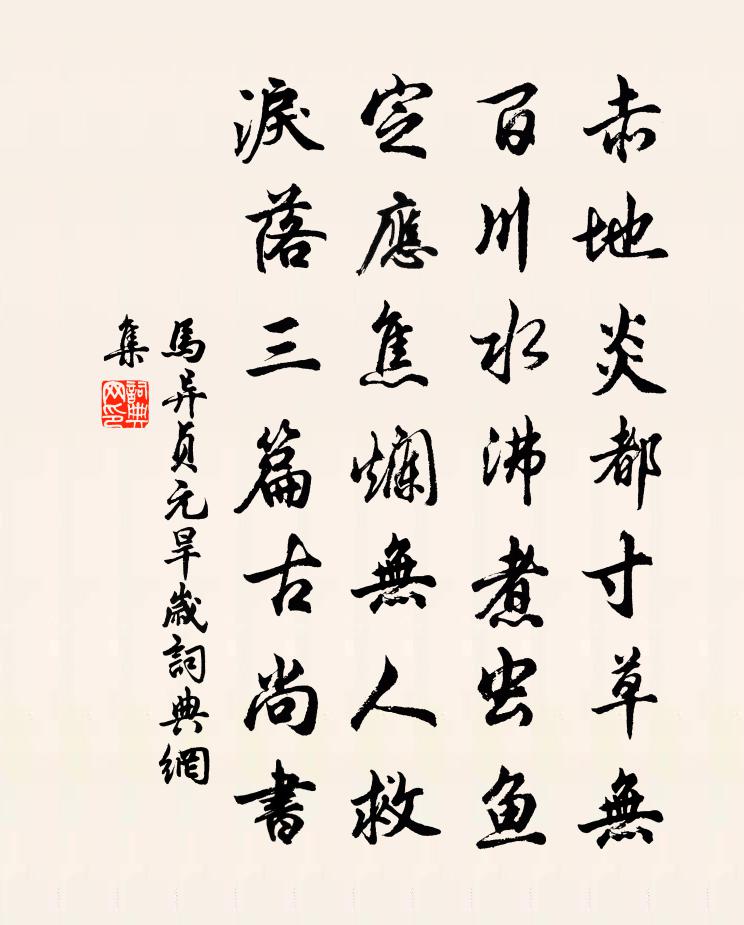 赤地炎都寸草無
百川水沸煮虫鱼
定應焦爛無人救
淚落三篇古尚書
馬异貞元旱歲詞典網
集
詞典
网印